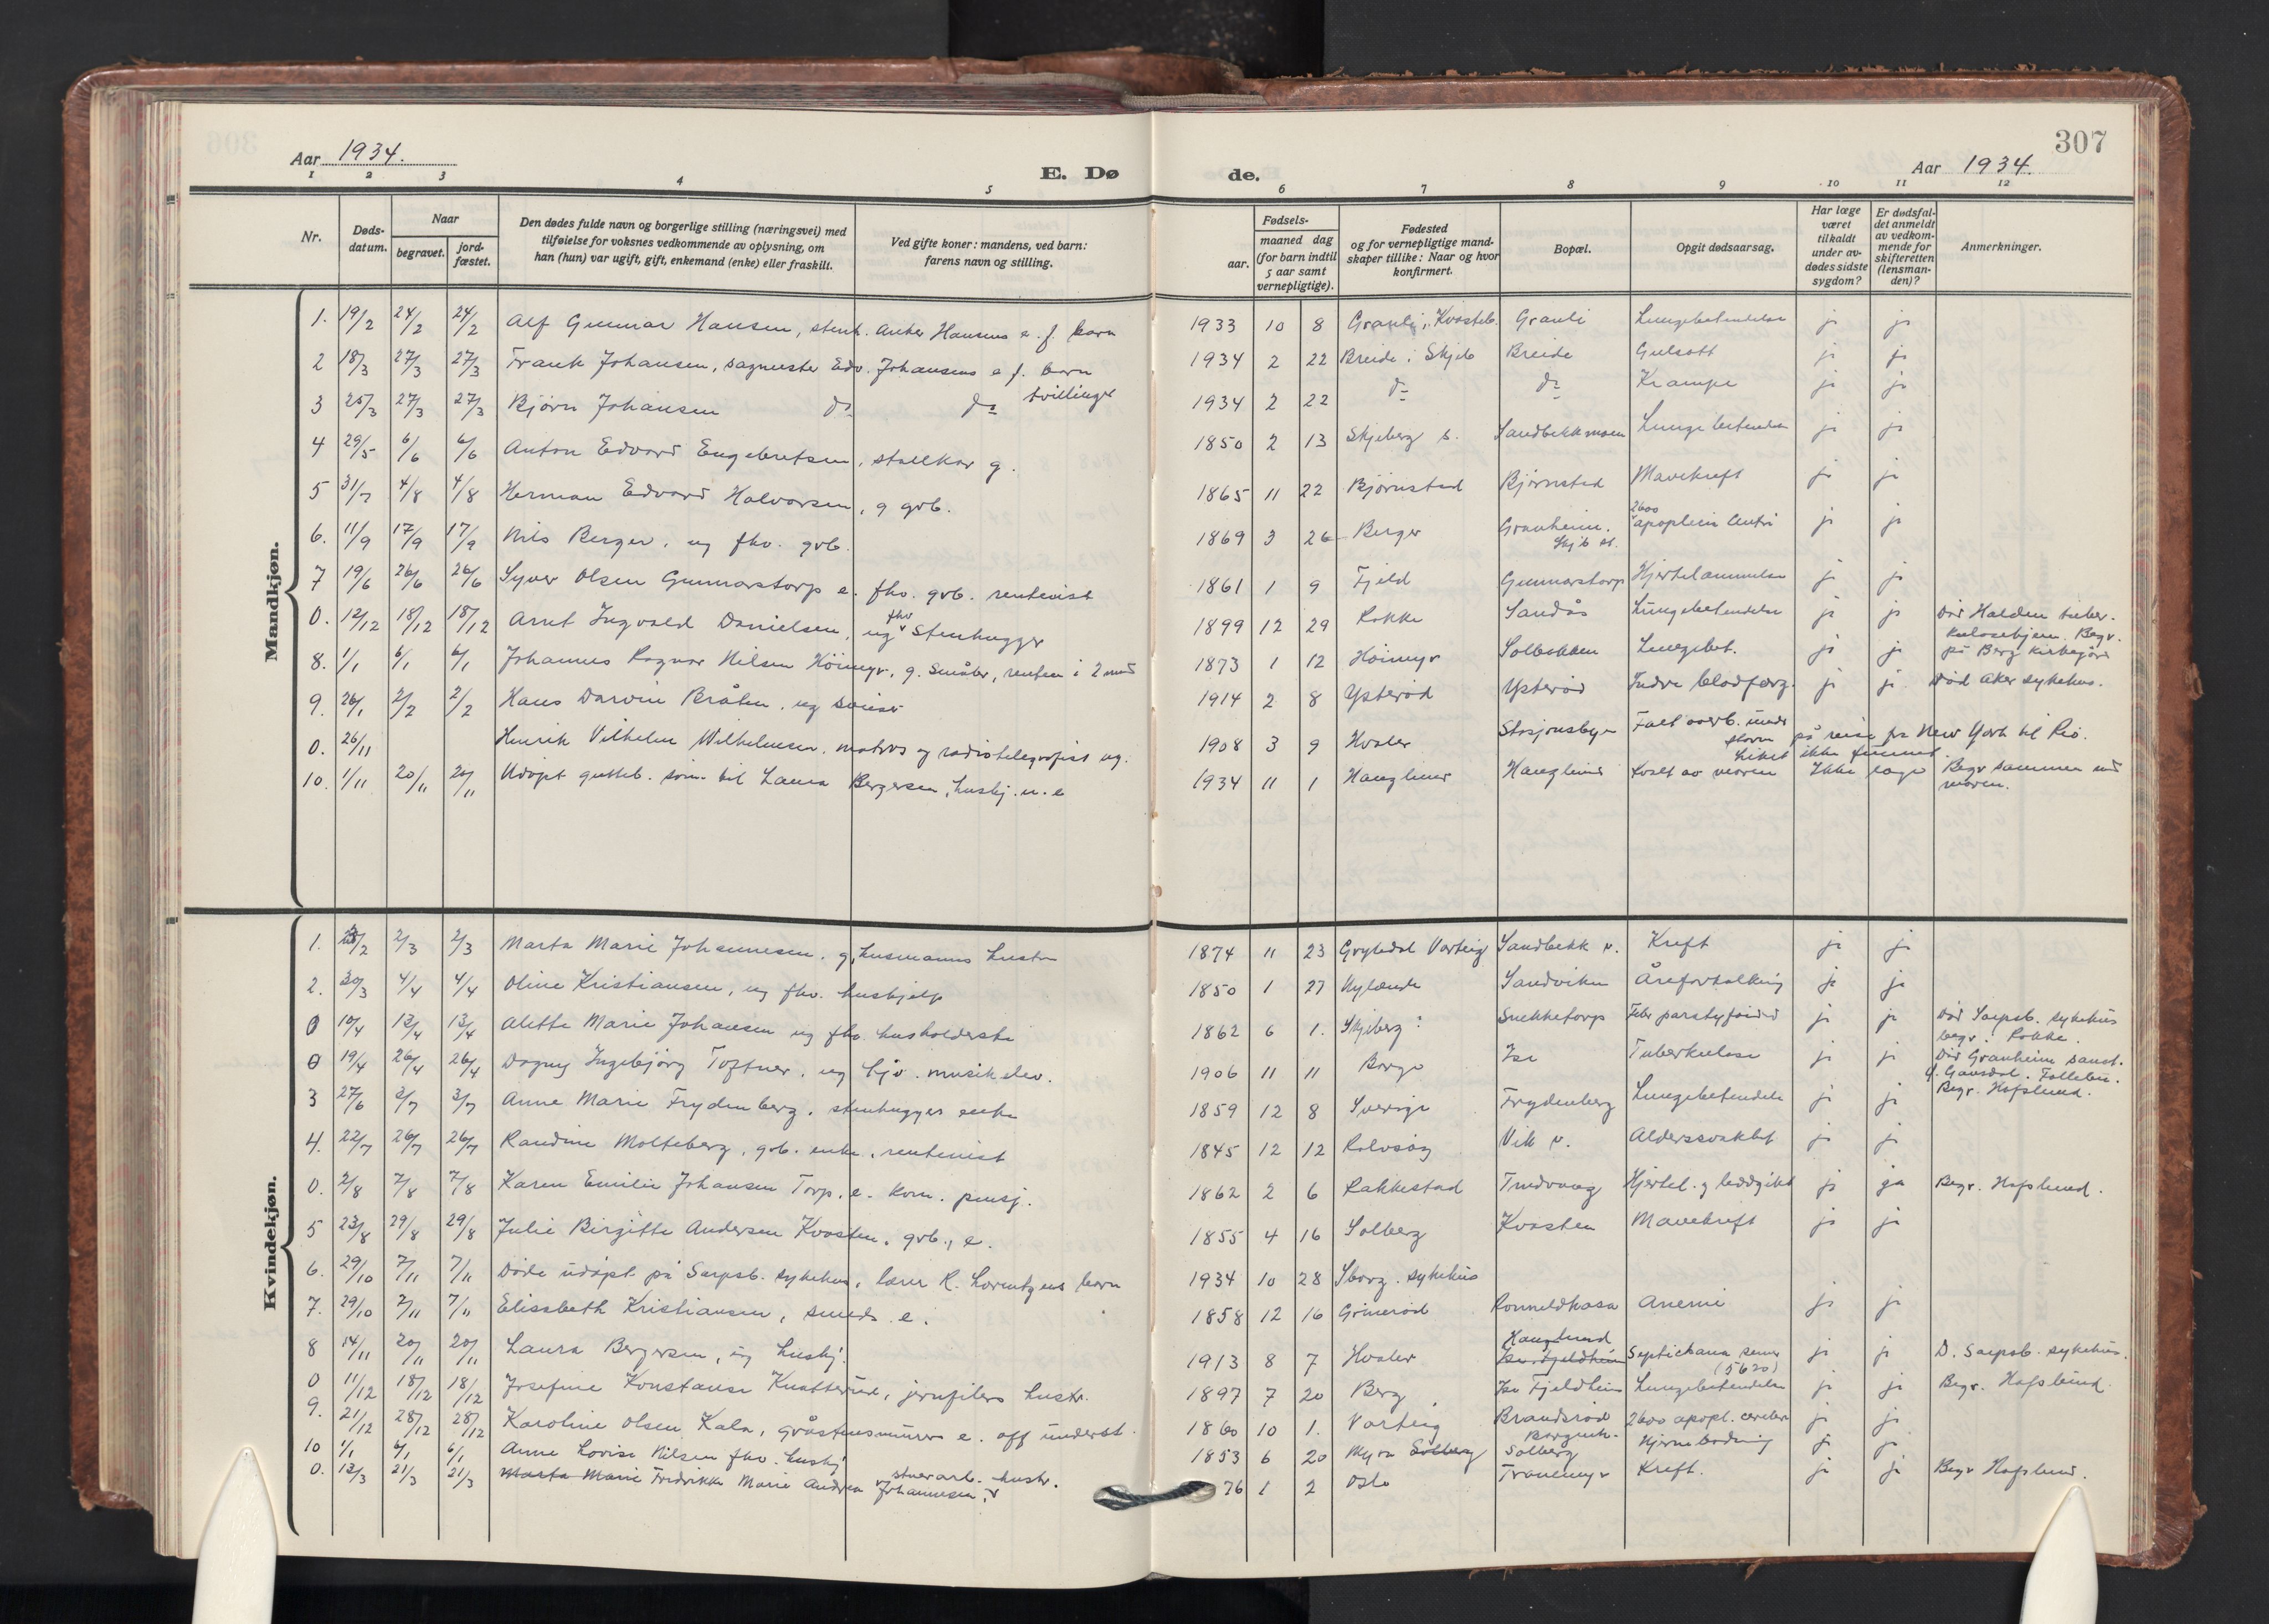 307
Aar 1934.
E. Døde.
Aar 1934.
1 2 3 4 5 6 7 8 9 10 11 12
Nr.
Døds-datum.
Naar
begravet.
jord-fæstet.
Den dødes fulde navn og borgerlige stilling (næringsvei) med
tilføielse for voksnes vedkommende av oplysning, om
han (hun) var ugift, gift, enkemand (enke) eller fraskilt.
Ved gifte koner: mandens, ved barn:
farens navn og stilling.
Fødsels-
aar.
maaned dag
(for barn indtil
5 aar samt
vernepligtige).
Fødested
og for vernepligtige mand-
skaper tillike: Naar og hvor
konfirmert.
Bopæl.
Opgit dødsaarsag.
Har læge
været
tilkaldt
under av-
dødes sidste
sygdom?
Er dødsfal-
det anmeldt
av vedkom-
mende for
skifteretten
(lensman-
den)?
Anmerkninger.
Mandkjøn.
1. 19/2 24/2 24/2 Alf Gunnar Hansen, stenh. Anker Hansens e. f. barn 1933 10 8 Granli, Kvasteb. Granli Lungebetendelse ja ja
2 18/3 27/3 27/3 Frank Johansen, sagmester Edv. Johansens e f. barn 1934 2 22 Breide i Skjeb Breide Gulsott ja ja
tvillinger
3 25/3 27/3 27/3 Bjørn Johansen do do 1934 2 22 do do Krampe ja ja
4 29/5 6/6 6/6 Anton Edvard Engebretsen, stallkar g. 1850 2 13 Skjeberg s. Sandbekkmoen Lungebetendelse ja ja
5 31/7 4/8 4/8 Herman Edvard Halvorsen, g grb. 1865 11 22 Bjørnstad Bjørnstad Mavekreft ja ja
6. 11/9 17/9 17/9 Nils Berger, ug fhv. grb. 1869 3 26 Berger Granheim. Skjb st. 2600 apoplexia cerebri ja ja
7 19/6 26/6 26/6 Syver Olsen Gunnarstorp e. fhv. grb. rentenist 1861 1 9 Fjeld Gunnarstorp Hjertelammelse ja ja
0. 12/12 18/12 18/12 Arnt Ingvald Danielsen, ug fhv Stenhugger 1899 12 29 Rokke Sandås Lungebetendelse ja ja Død Halden tuber-
kulosehjem. Begr.
på Berg kirkegård
8. 1/1 6/1 6/1 Johannes Ragnar Nilsen Höimyr, g. småbr, rentenist 1873 1 12 Höimyr Solbakken Lungebet. ja ja
9. 26/1 2/2 2/2 Hans Darvin Bråten, ug sveiser 1914 2 8 Ysterød Ysterød Indre blodforg. ja ja Død Aker sykehus.
0. 26/11 Henrik Vilhelm Wilhelmsen, matros og radiotelegrafist ug. 1908 3 9 Hvaler Stasjonsbyen Falt overb. under storm på reise fra New York til Rio.
Liket ikke funnet.
10. 1/11 20/11 20/11 Udøpt gutteb. søn til Laura Bergersen, hushj. u. e 1934 11 1 Hauglund Hauglund kvalt av moren Ikke læge Begr sammen med
moren.
Kvindekjøn.
1. /2 2/3 2/3 Marta Marie Johannesen, g, husmanns hustru 1874 11 23 Grytedal Varteig Sandbekk v. Kreft ja ja
2. 30/3 4/4 4/4 Oline Kristiansen, ug fhv. hushjelp 1850 1 27 Nylende Sandviken Åreforkalkning ja ja
0 10/4 13/4 13/4 Alette Marie Johansen ug fhv. husholderske 1862 6 1. Skjeberg Snekketorp Febr paratyfoid ja ja Død Sarpsb. sykehus
begr. Rokke.
0 19/4 26/4 26/4 Dagny Ingebjørg Toftner, ug hjv. musikelev. 1906 11 11 Borge Ise Tuberkulose ja ja Død Granheim sanat.
Ö. Gausdal. Follebu.
Begr. Hafslund.
3 27/6 3/7 3/7 Anne Marie Frydenberg, stenhugger enke 1859 12 8 Sverige Frydenberg Lungebetendelse ja ja
4. 22/7 26/7 26/7 Randine Molteberg, grb. enke, rentenist 1845 12 12 Rolvsøy Vik v. Alderssvakhet ja ja
0. 2/8 7/8 7/8 Karen Emilie Johansen Torp, e. kom. pensj. 1862 2 6 Rakkestad Tindvang Hjertel. og leddgikt ja ja Begr. Hafslund.
5 23/8 29/8 29/8 Julie Birgitte Andersen Kvasten, grb., e. 1855 4 16 Solberg Kvasten Mavekreft ja ja
6. 29/10 7/11 7/11 Døde udøpt på Sarpsb. sykehus, lærer R. Lorentzens barn 1934 10 28 Sborg. sykehus
7. 29/10 2/11 7/11 Elisabeth Kristiansen, smeds e. 1858 12 16 Grimerød Romeldkasa Anemi ja ja
8 14/11 20/11 20/11 Laura Bergersen, ug hushj. 1913 8 7 Hvaler Hauglund Septichæmia (5620) ja ja D. Sarpsb. sykehus.
0 11/12 18/12 18/12 Josefine Konstanse Knatterud, jernfilers hustr. 1897 7 20 Berg Ise Fjeldheim Lungebetendelse ja ja Begr. Hafslund.
9. 21/12 28/12 28/12 Karoline Olsen Kala, gråstensmurer e. off underst. 1860 10 1. Varteig Brandsrød 2600 apopl. cerebri ja ja
10 1/1 6/1 6/1 Anne Lovise Nilsen fhv. hushj 1853 6 20 Myra Solberg Borgenh. Solberg Hjerneblødning ja ja
0. 13/3 21/3 21/3 Marta Marie Fredrikke Marie Andrea Johannesen, stuerarb. hustr. 76 1 2 Oslo Tranemyr Kreft. ja ja Begr Hafslund.